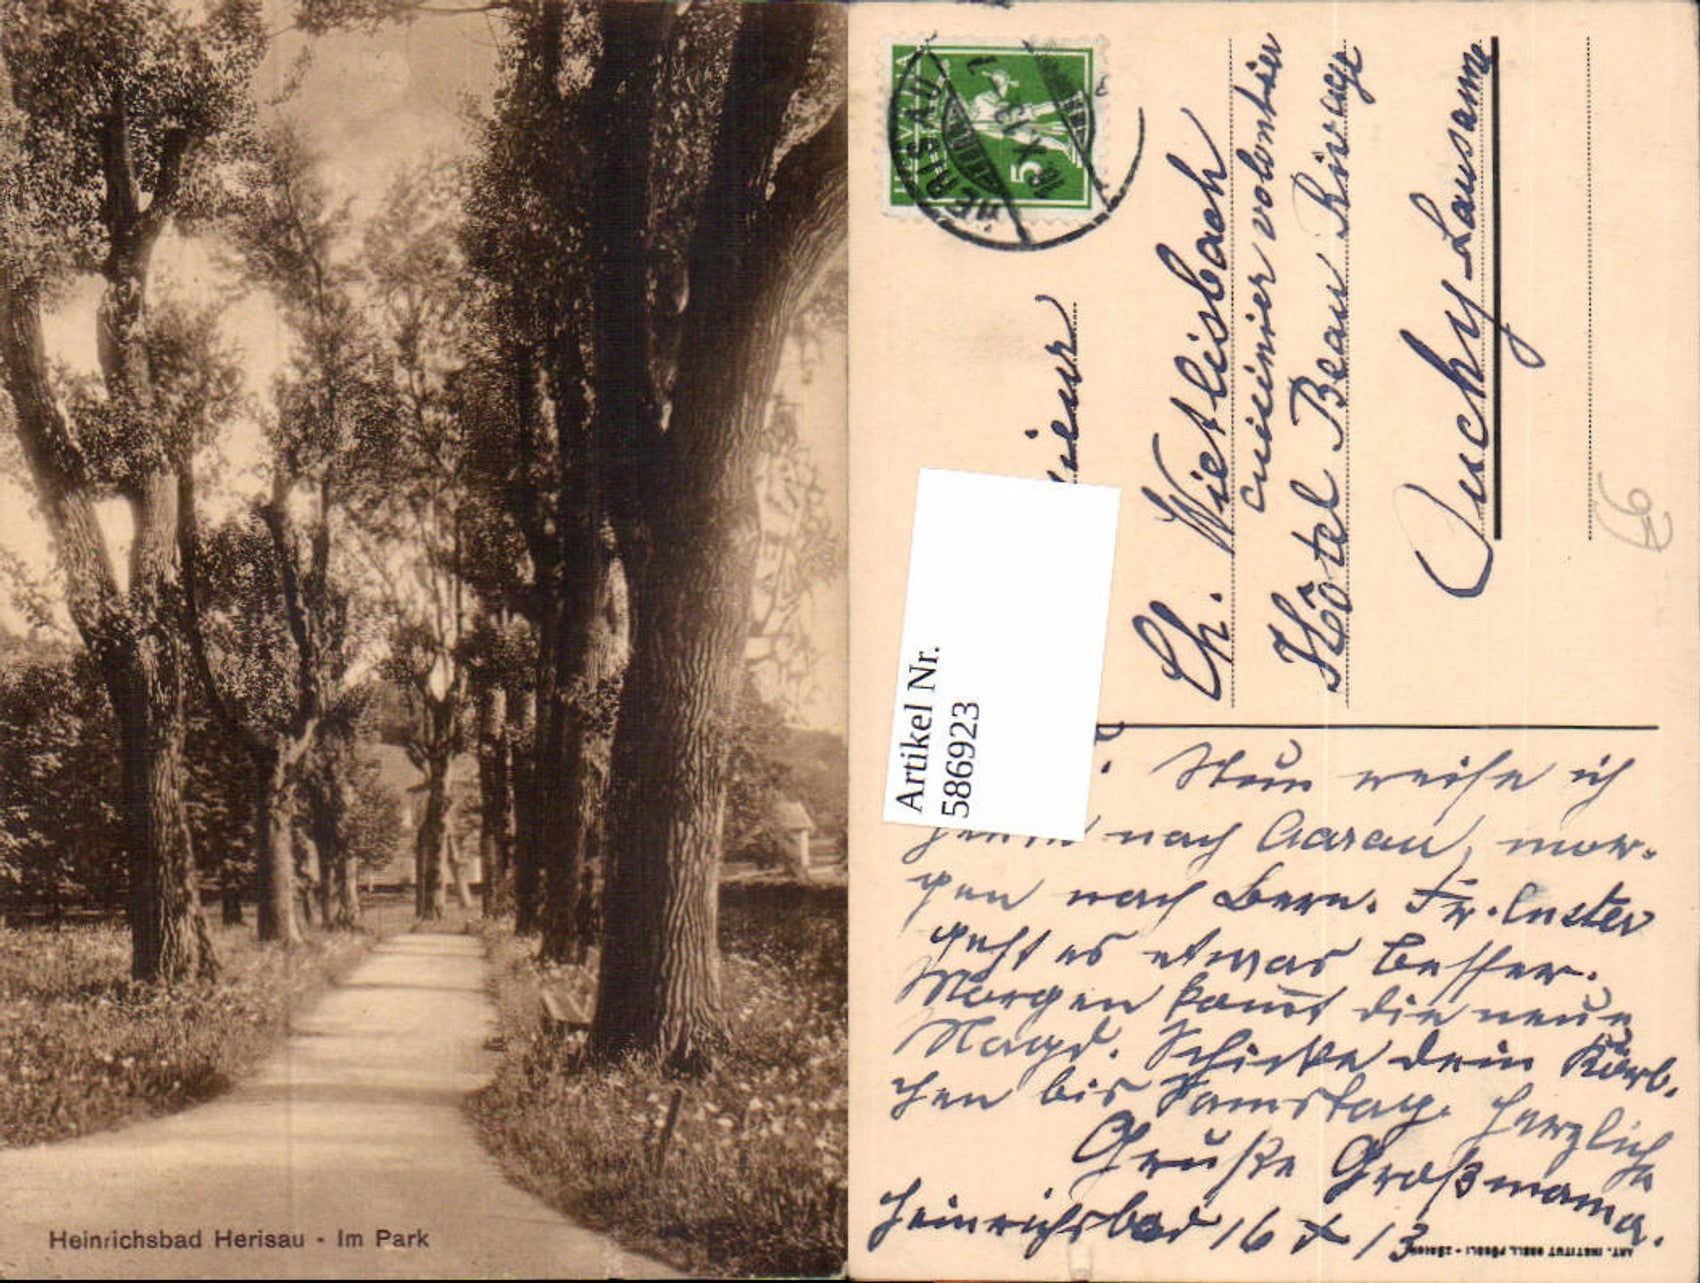 Heinrichsbad Herisau - Im Park
HELVETIA
5
HERISAU
16.X.13
Artikel Nr.
586923
Ch. Wietlisbach
cuisinier volontier
Hôtel Beau Rivage
Ouchy Lausanne
Nun reise ich
heute nach Aarau, mor-
gen nach Bern. Fr.
geht es etwas besser.
Morgen komt die neue
Magd. Schicke dein Körb-
chen bis Samstag. Herzliche
Grüße Großmama.
Heinrichsbad 16 X 13
ART. INSTITUT ORELL FÜSSLI - ZÜRICH